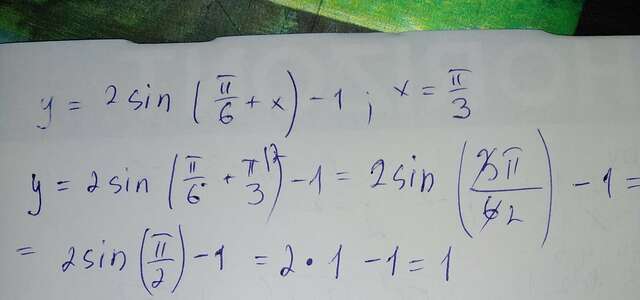 y = 2sin(π/6 + x) - 1 ; x = π/3
y = 2sin(π/6 + π/3 |2) - 1 = 2sin(3π/6 2) - 1 =
= 2sin(π/2) - 1 = 2 • 1 - 1 = 1